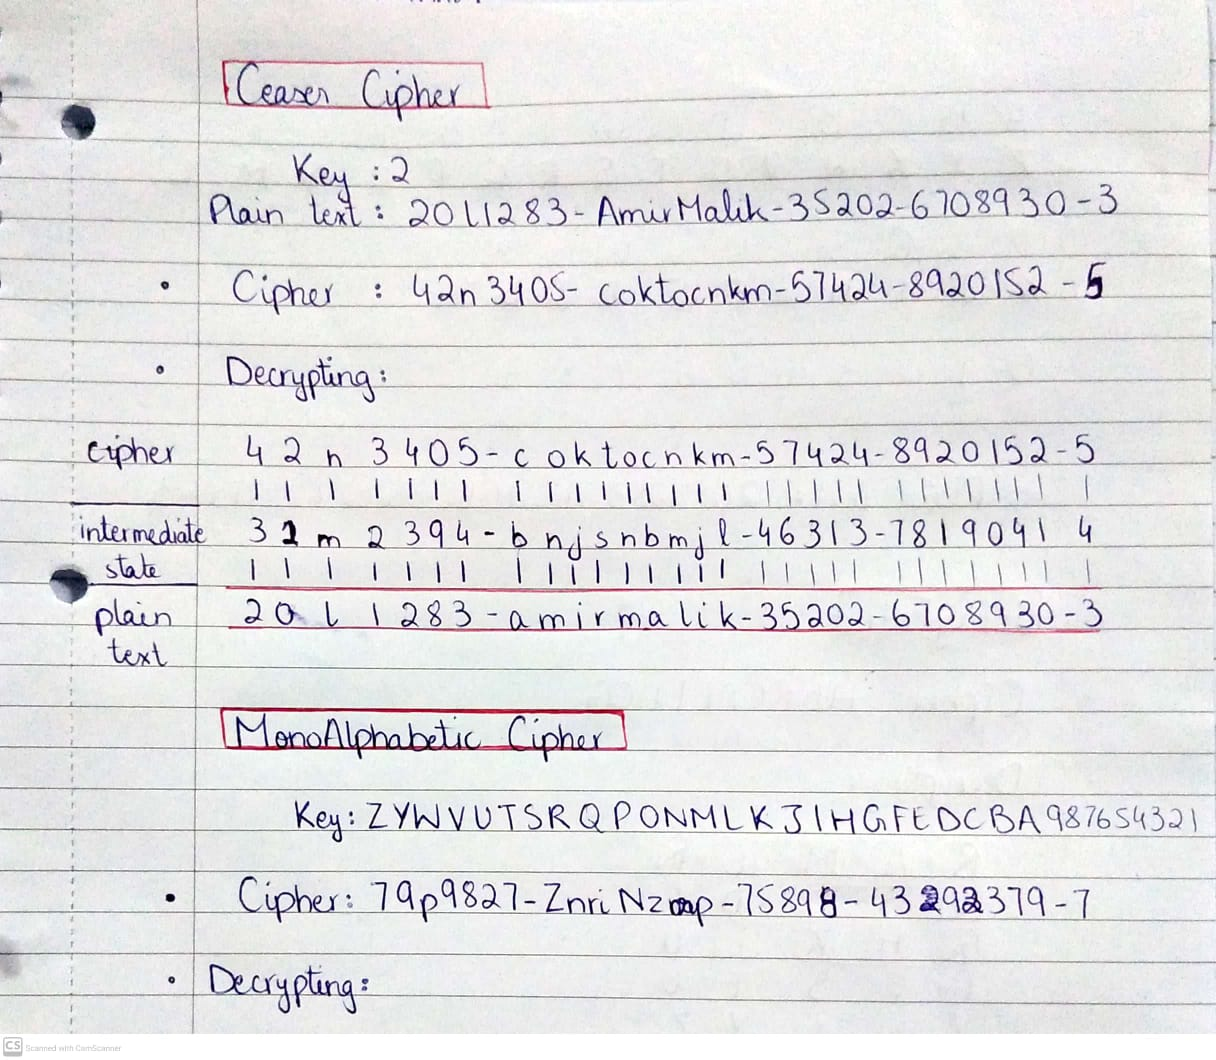 Ceaser Cipher
Key : 2
Plain text : 20L1283-AmirMalik-35202-6708930-3
• Cipher : 42n3405-coktocnkm-57424-8920152-5
• Decrypting:
cipher 42n3405-coktocnkm-57424-8920152-5
intermediate state 31m2394-bnjsnbmjl-46313-7819041 4
plain text 20L1283-amirmalik-35202-6708930-3
MonoAlphabetic Cipher
Key: ZYWVUTSRQPONMLKJIHGFEDCBA987654321
• Cipher: 79p9827-ZnriNzop-75898-43292379-7
• Decrypting:
CS Scanned with CamScanner